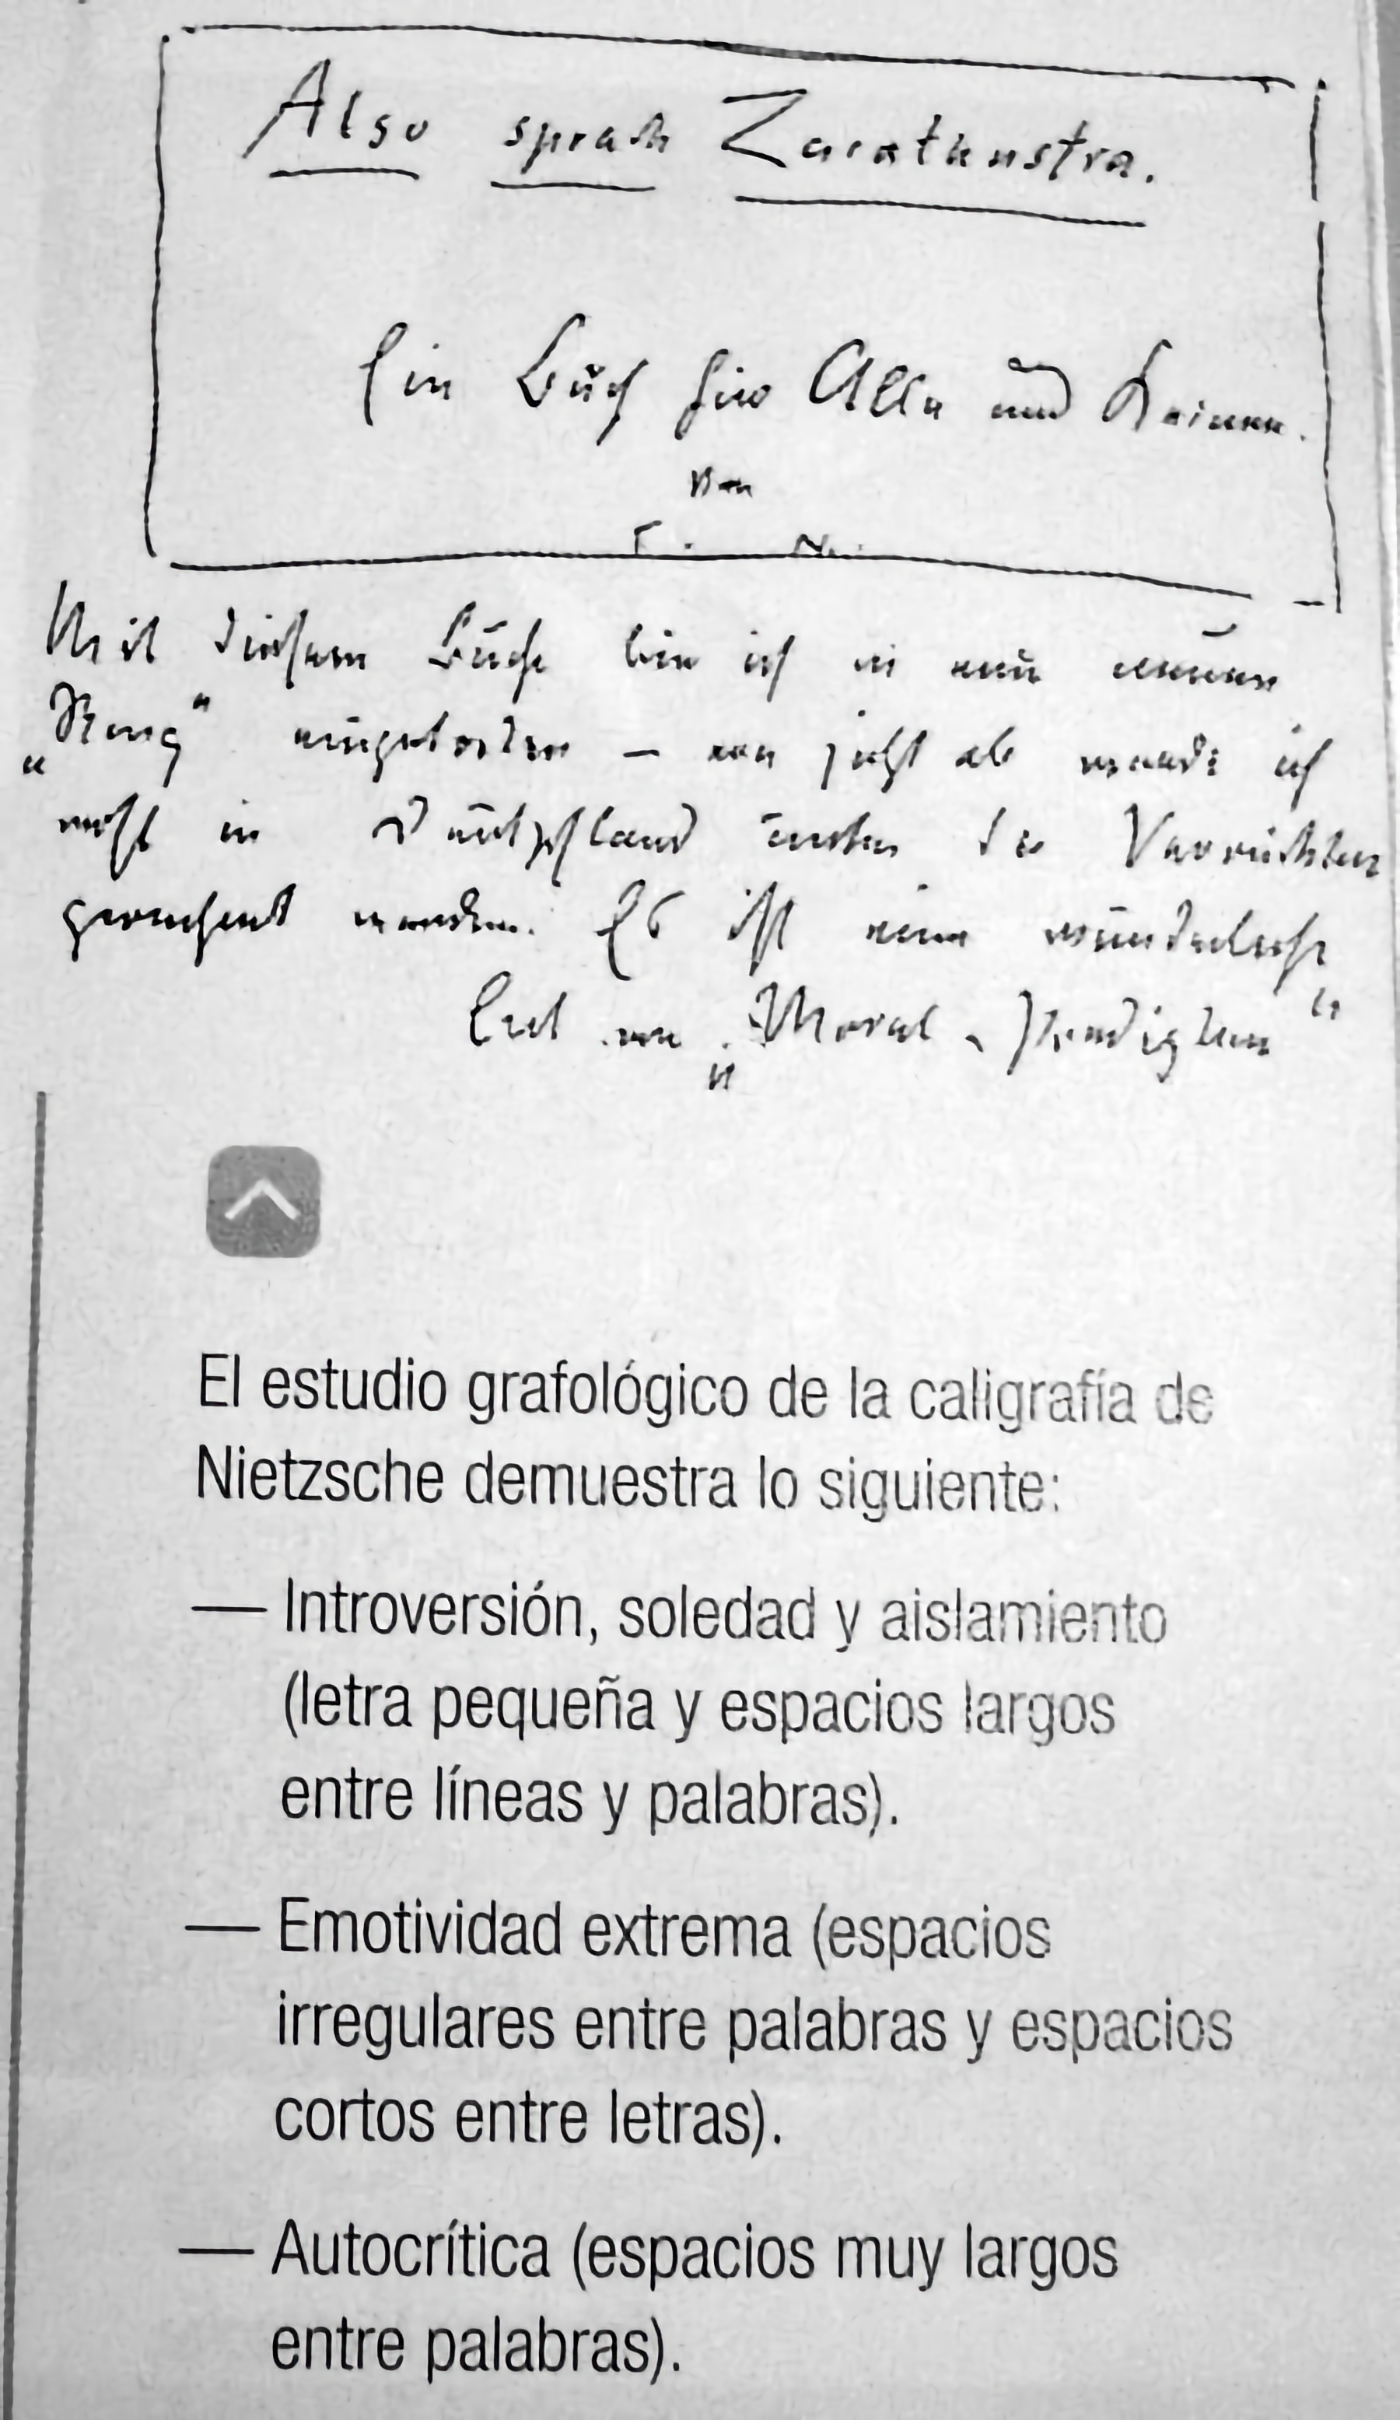 Also sprach Zarathustra.
Ein Buch für Alle und Keinen.
Von
Mit diesem Buche bin ich in einen neuen
„Ring“ eingetreten — von jetzt ab werde ich
wohl in Deutschland unter die Verrückten
gerechnet werden. Es ist eine wunderliche
Art von „Moral-Predigten“
El estudio grafológico de la caligrafía de
Nietzsche demuestra lo siguiente:
— Introversión, soledad y aislamiento
(letra pequeña y espacios largos
entre líneas y palabras).
— Emotividad extrema (espacios
irregulares entre palabras y espacios
cortos entre letras).
— Autocrítica (espacios muy largos
entre palabras).